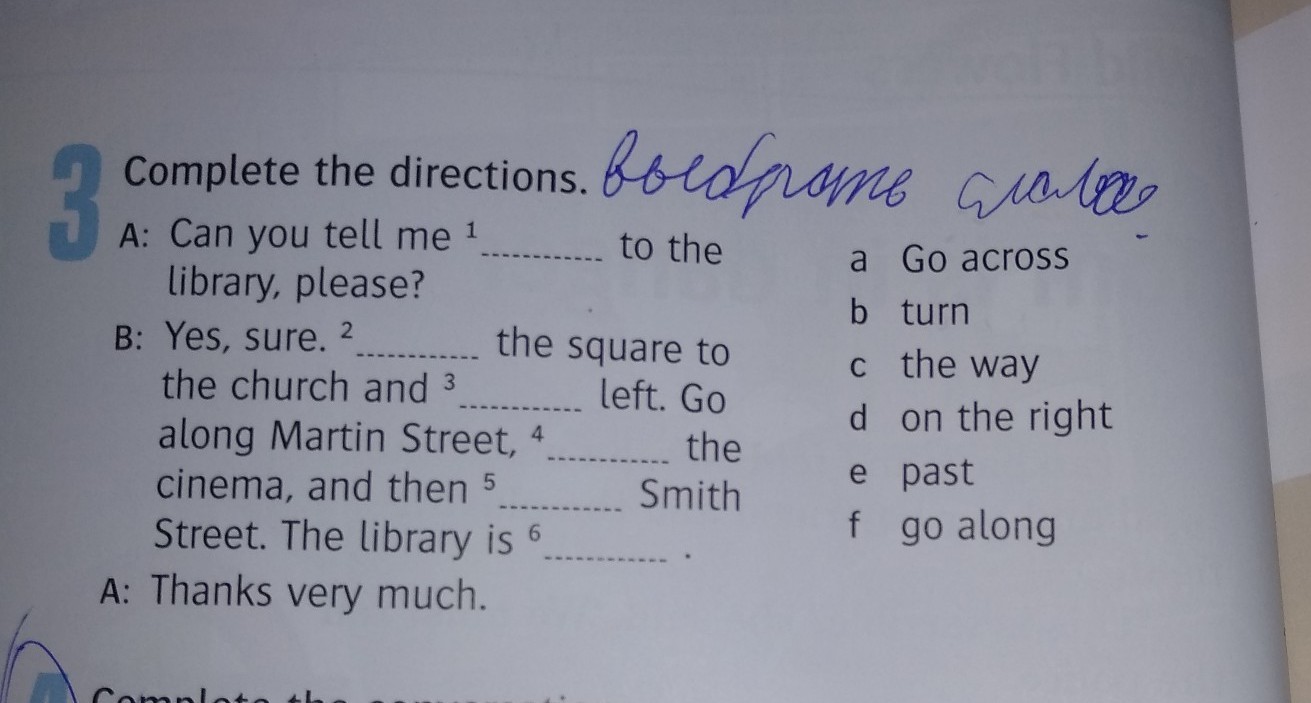 3 Complete the directions.
A: Can you tell me 1 ............ to the
library, please?
B: Yes, sure. 2 ............ the square to
the church and 3 ............ left. Go
along Martin Street, 4 ............ the
cinema, and then 5 ............ Smith
Street. The library is 6 ............ .
A: Thanks very much.
a Go across
b turn
c the way
d on the right
e past
f go along